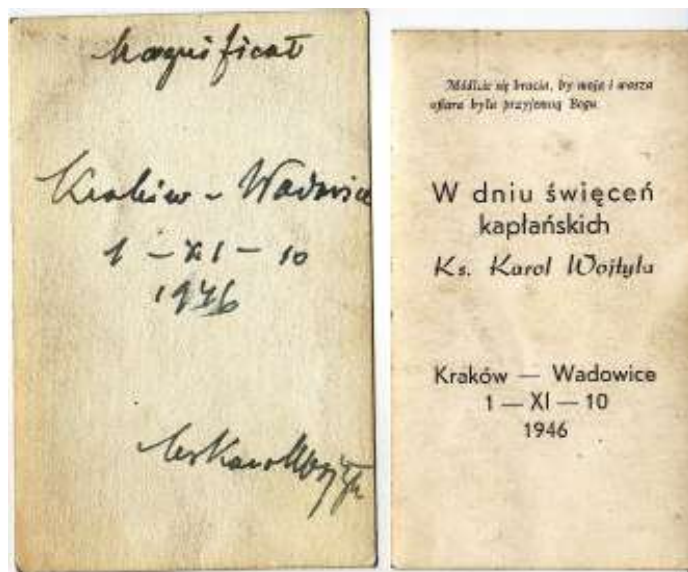 Magnificat
Kraków - Wadowice
1 - XI - 10
1946
ks Karol Wojtyła
Módlcie się bracia, by moja i wasza
ofiara była przyjemną Bogu
W dniu święceń
kapłańskich
Ks. Karol Wojtyła
Kraków — Wadowice
1 — XI — 10
1946